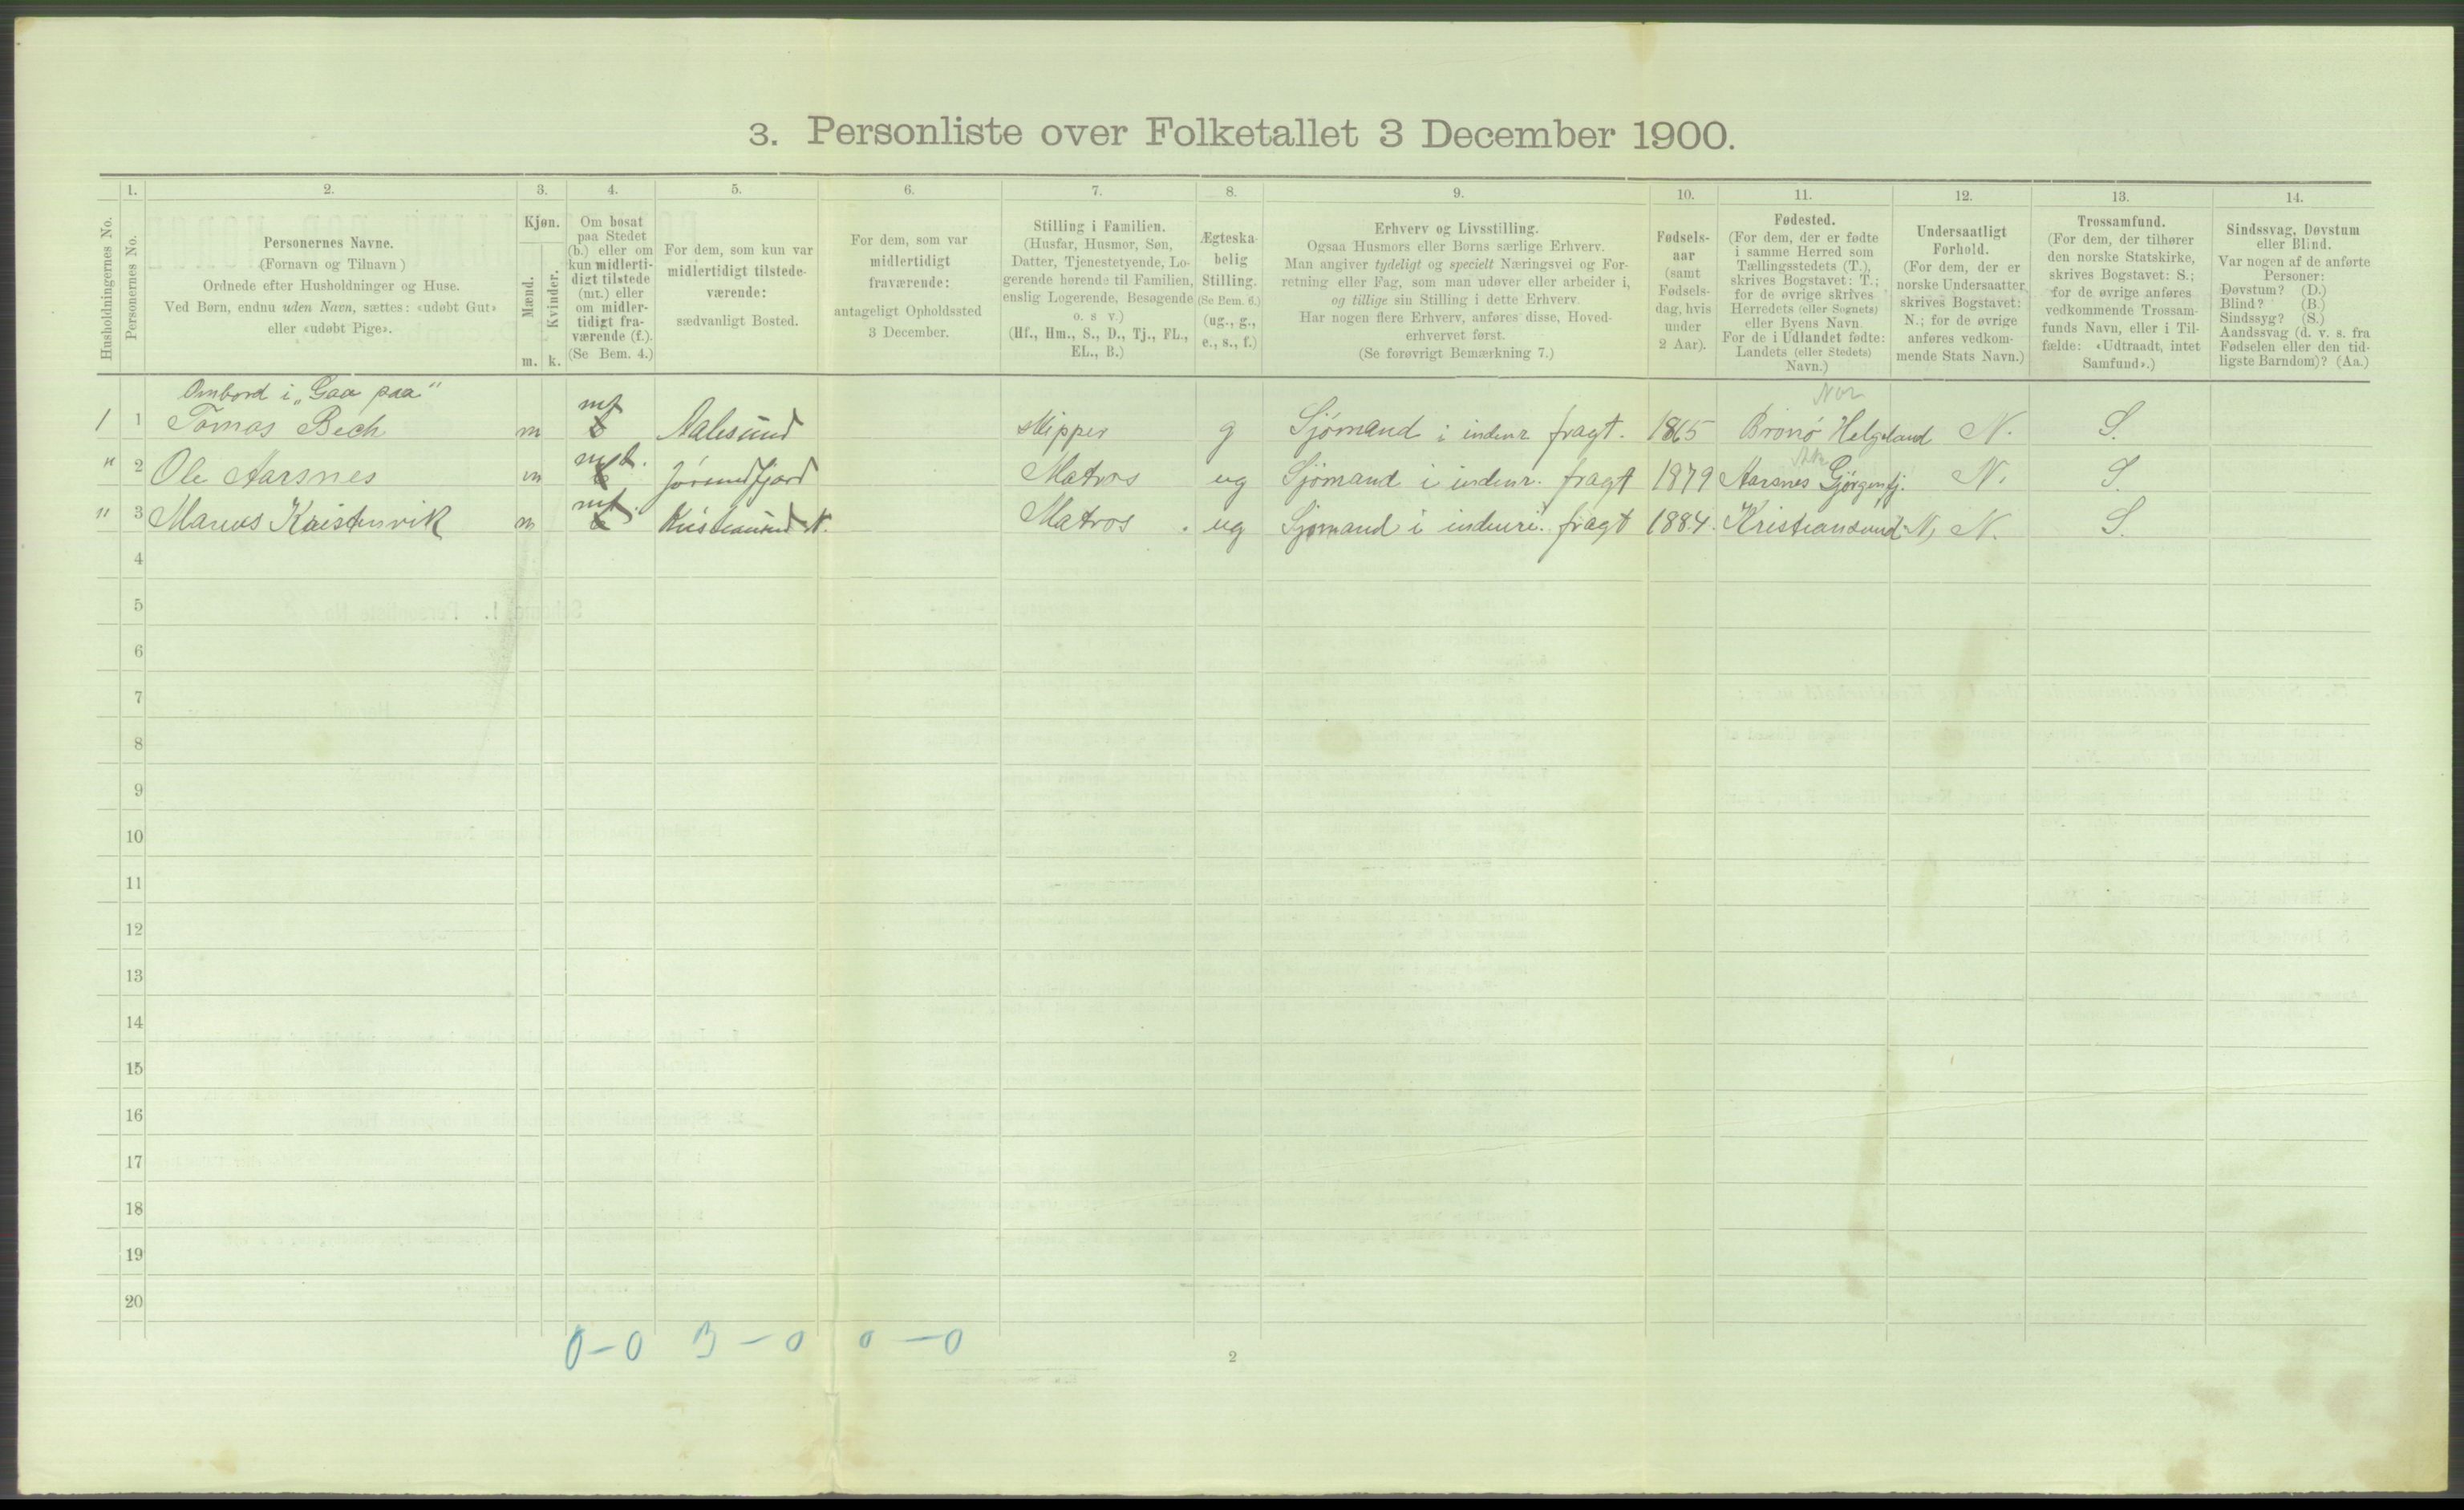 3. Personliste over Folketallet 3 December 1900.
1. 2. 3. 4. 5. 6. 7. 8. 9. 10. 11. 12. 13. 14.
Husholdningernes No.
Personernes No.
Personernes Navne.
(Fornavn og Tilnavn)
Ordnede efter Husholdninger og Huse.
Ved Børn, endnu uden Navn, sættes: «udøbt Gut»
eller «udøbt Pige».
Kjøn.
Mænd.
Kvinder.
m. k.
Om bosat
paa Stedet
(b.) eller om
kun midlerti-
digt tilstede
(mt.) eller
om midler-
tidigt fra-
værende (f.).
(Se Bem. 4.)
For dem, som kun var
midlertidigt tilstede-
værende:
sædvanligt Bosted.
For dem, som var
midlertidigt
fraværende:
antageligt Opholdssted
3 December.
Stilling i Familien.
(Husfar, Husmor, Søn,
Datter, Tjenestetyende, Lo-
gerende hørende til Familien,
enslig Logerende, Besøgende
o. s v.)
(Hf., Hm., S., D., Tj., FL.,
EL., B.)
Ægteska-
belig
Stilling.
(Se Bem. 6.)
(ug., g.,
e., s., f.)
Erhverv og Livsstilling.
Ogsaa Husmors eller Børns særlige Erhverv.
Man angiver tydeligt og specielt Næringsvei og For-
retning eller Fag, som man udøver eller arbeider i,
og tillige sin Stilling i dette Erhverv.
Har nogen flere Erhverv, anføres disse, Hoved-
erhvervet først.
(Se forøvrigt Bemærkning 7.)
Fødsels-
aar
(samt
Fødsels-
dag, hvis
under
2 Aar).
Fødested.
(For dem, der er fødte
i samme Herred som
Tællingsstedets (T.),
skrives Bogstavet: T.;
for de øvrige skrives
Herredets (eller Sognets)
eller Byens Navn.
For de i Udlandet fødte:
Landets (eller Stedets)
Navn.)
Undersaatligt
Forhold.
(For dem, der er
norske Undersaatter,
skrives Bogstavet:
N.; for de øvrige
anføres vedkom-
mende Stats Navn.)
Trossamfund.
(For dem, der tilhører
den norske Statskirke,
skrives Bogstavet: S.;
for de øvrige anføres
vedkommende Trossam-
funds Navn, eller i Til-
fælde: «Udtraadt, intet
Samfund».)
Sindssvag, Døvstum
eller Blind.
Var nogen af de anførte
Personer:
Døvstum? (D.)
Blind? (B.)
Sindssyg? (S.)
Aandssvag (d. v. s. fra
Fødselen eller den tid-
ligste Barndom)? (Aa.)
Ombord i „Gaa paa"
Nor
1 1 Tomas Bech m mt b Aalesund skipper g Sjømand i indenr fragt. 1865 Brønø Helgeland N. S.
" 2 Ole Aarsnes m mt. b Jørundfjord Matros ug Sjømand i indenr. fragt 1879 Aarsnes Gjørgenfj. N. S.
" 3 Marius Kristenvik m mt. b Kristiansund N. Matros . ug Sjømand i indenri. fragt 1884. Kristiansund N, N. S.
4
5
6
7
8
9
10
11
12
13
14
15
16
17
18
19
20
0-0 3-0 0-0
2